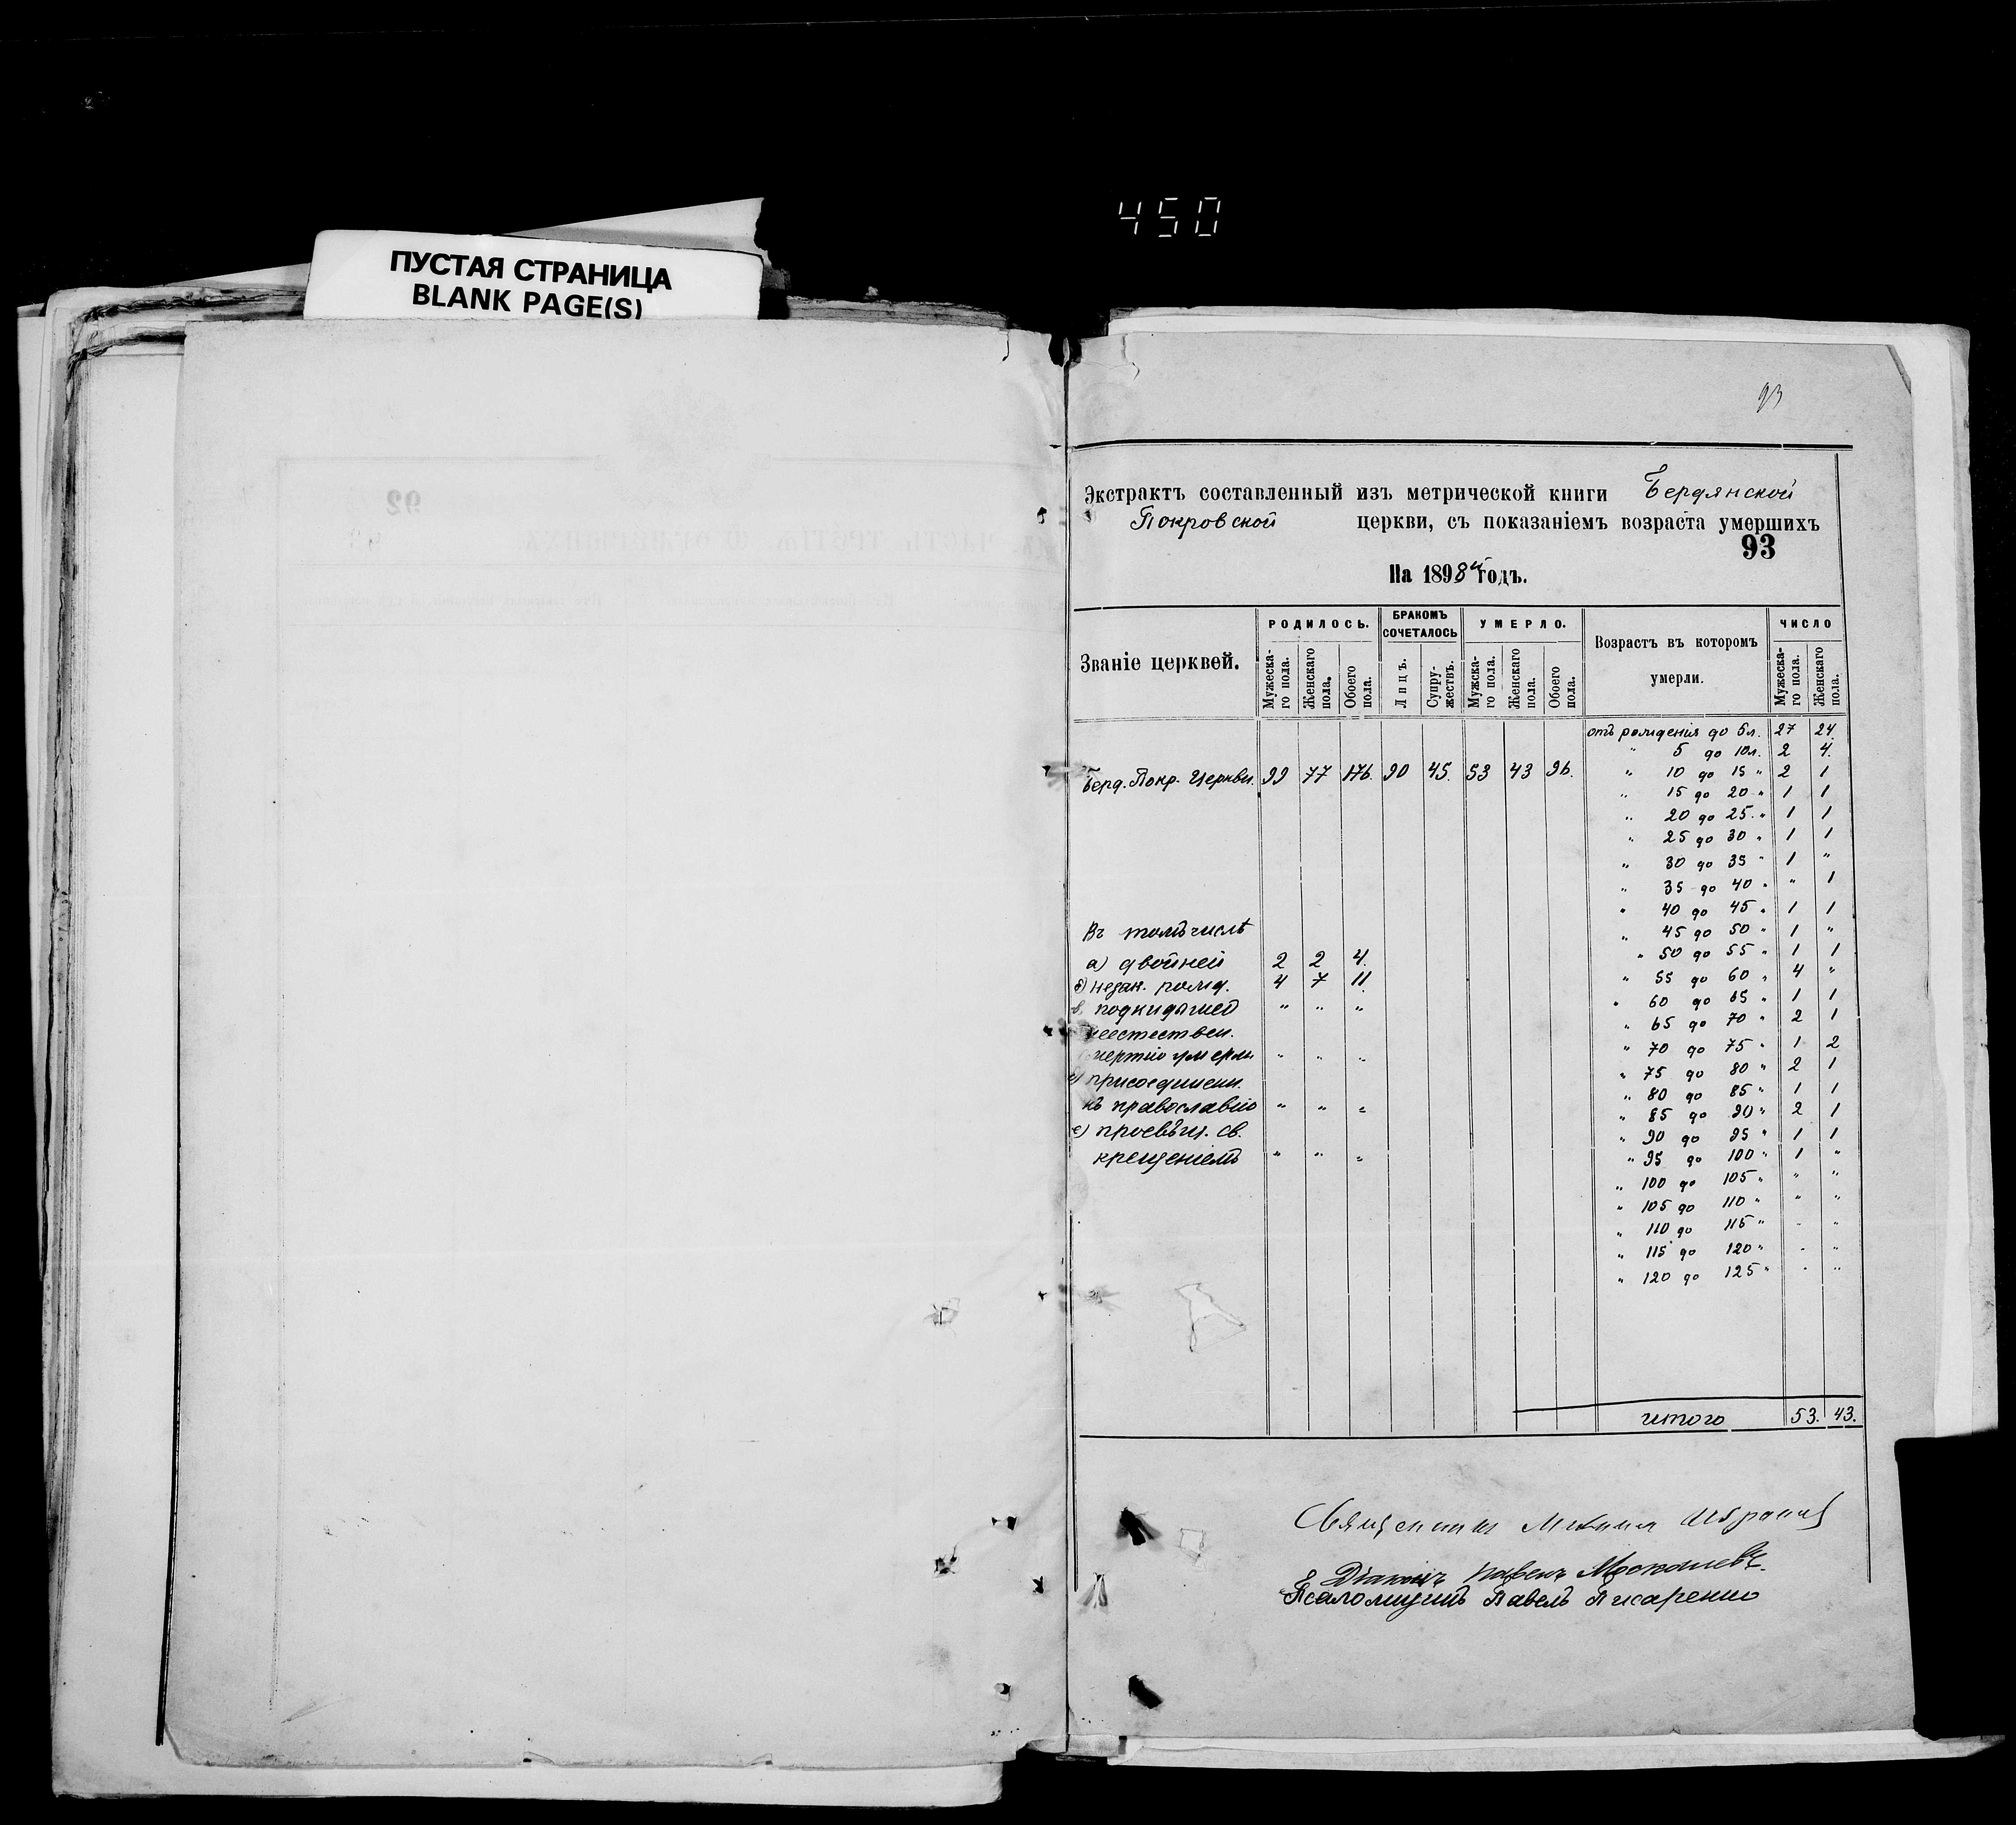 450
ПУСТАЯ СТРАНИЦА
BLANK PAGE(S)
93
Экстрактъ составленный изъ метрической книги Бердянской
Покровской церкви, съ показаніемъ возраста умершихъ
93
На 1898й годъ.
Званіе церквей.
РОДИЛОСЬ.
Мужеска-го пола.
Женскаго пола.
Обоего пола.
БРАКОМЪ СОЧЕТАЛОСЬ
Лицъ.
Супру-жествъ.
УМЕРЛО.
Мужска-го пола.
Женскаго пола.
Обоего пола.
Возрастъ въ которомъ умерли.
ЧИСЛО
Мужеска-го пола.
Женскаго пола.
Берд. Покр. Церкви. 99 77 176. 90 45. 53 43 96.
Въ томъ числѣ
а) двойней 2 2 4.
б) незак. рожд. 4 7 11.
в) подкидышей " " "
неестествен.
смертію умерли " " "
присоединен.
къ православію " " "
е) просвѣщ. св.
крещеніемъ " " "
отъ рожденія до 5 л. 27 24.
" 5 до 10 л. 2 4.
" 10 до 15 " 2 1
" 15 до 20 " 1 1
" 20 до 25 " 1 1
" 25 до 30 " 1 1
" 30 до 35 " 1 "
" 35 до 40 " " 1
" 40 до 45 " 1 1
" 45 до 50 " 1 "
" 50 до 55 " 1 1
" 55 до 60 " 4 "
" 60 до 65 " 1 1
" 65 до 70 " 2 1
" 70 до 75 " 1 2
" 75 до 80 " 2 1
" 80 до 85 " 1 1
" 85 до 90 " 2 1
" 90 до 95 " 1 1
" 95 до 100 " 1 "
" 100 до 105 " " "
" 105 до 110 " " "
" 110 до 115 " " "
" 115 до 120 " " "
" 120 до 125 " " "
итого 53. 43.
Священникъ Михаил
Діаконъ Павелъ
Псаломщикъ Павелъ Писаренко